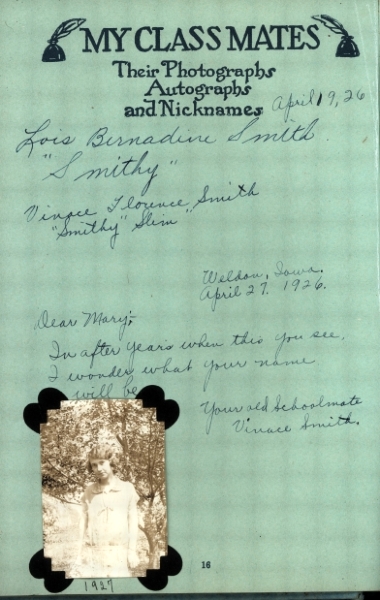 MY CLASS MATES
Their Photographs
Autographs
and Nicknames
April 19, 26
Lois Bernadine Smith
"Smithy"
Vinace Florence Smith
"Smithy" Slim"
Weldon, Iowa.
April 27. 1926.
Dear Mary;-
In after years when this you see,
I wonder what your name
will be
Your old Schoolmate
Vinace Smith.
1927
16